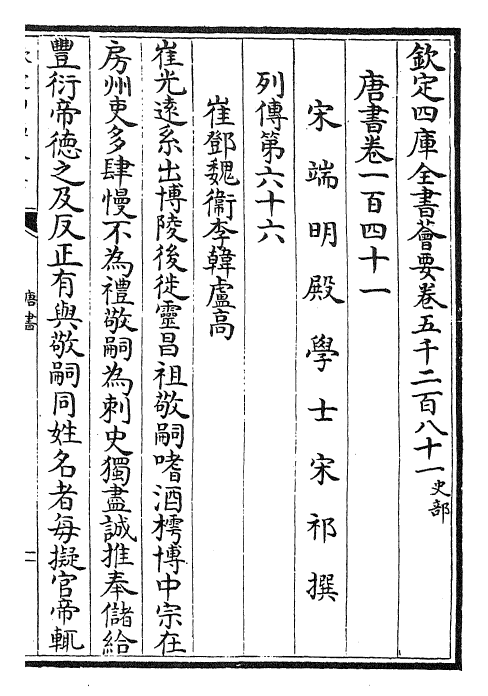 欽定四庫全書薈要卷五千二百八十一史部
唐書卷一百四十一
宋端明殿學士宋祁撰
列傳第六十六
崔鄧魏衞李韓盧高
崔光逺系出博陵後徙靈昌祖敬嗣嗜酒樗博中宗在
房州吏多肆慢不為禮敬嗣為刺史獨盡誠推奉儲給
豐衍帝徳之及反正有與敬嗣同姓名者每擬官帝輒
唐書
一